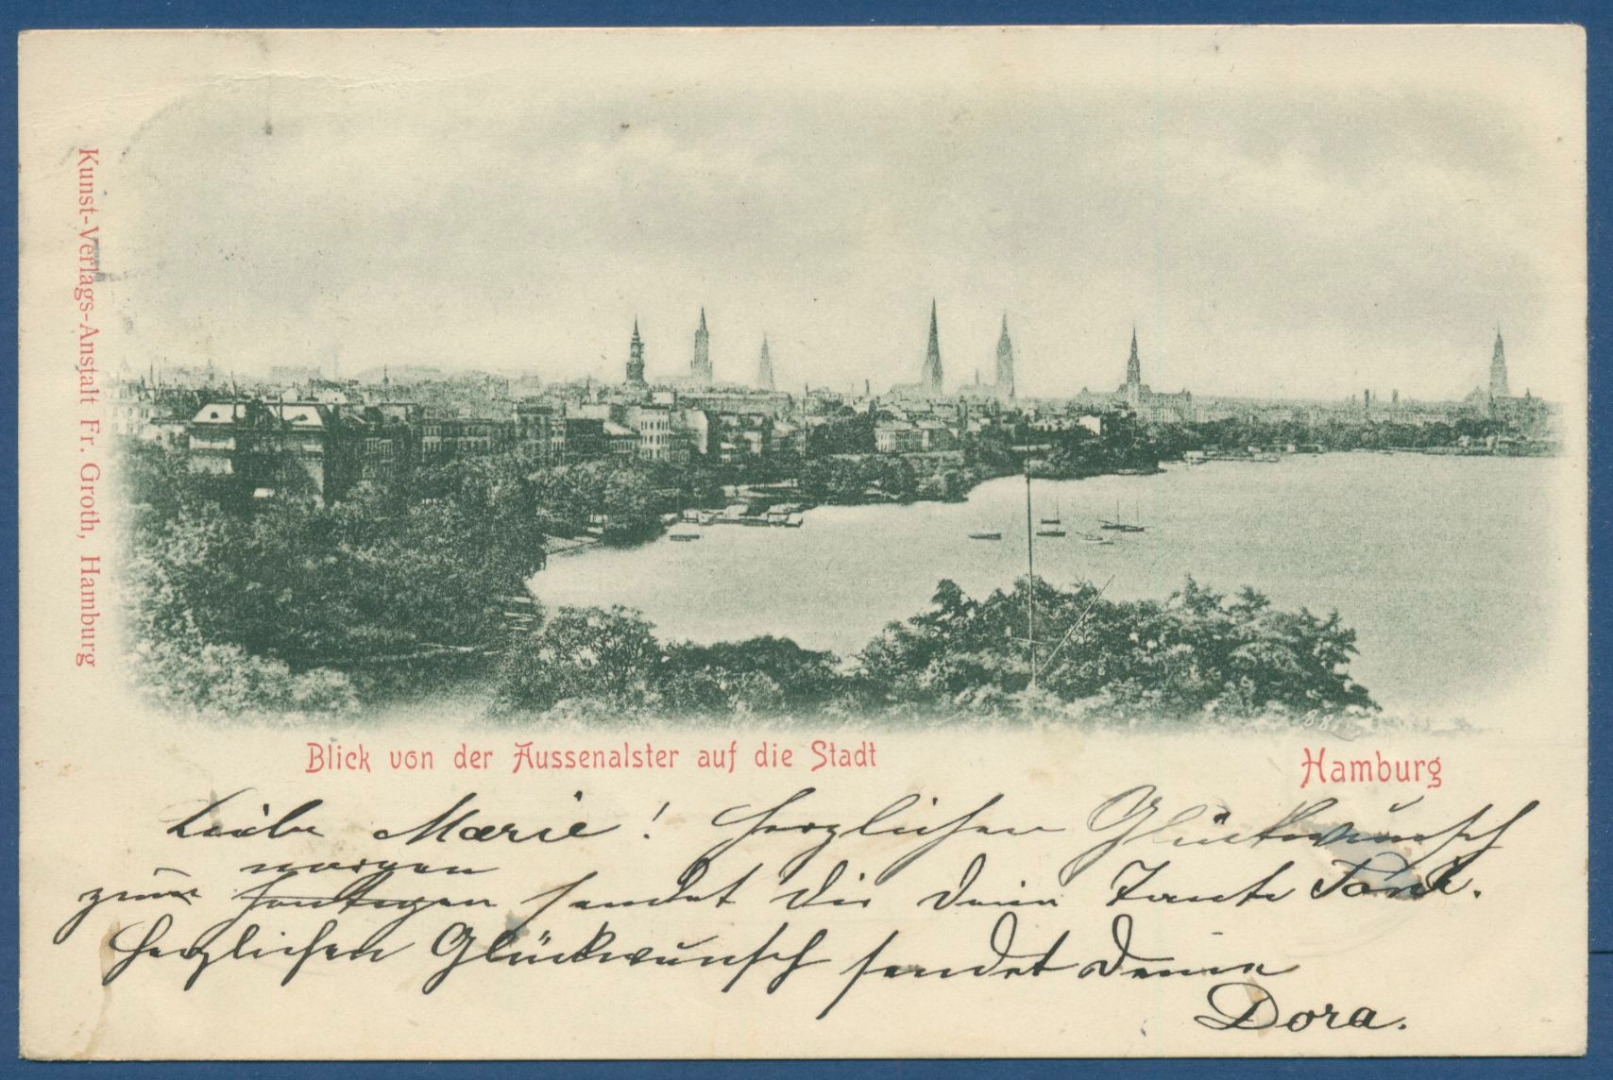 Kunst-Verlags-Anstalt Fr. Groth, Hamburg
Blick von der Aussenalster auf die Stadt
Hamburg
Liebe Marie! Herzlichen Glückwunsch
morgen
zum heutigen sendet dir deine Tante
Herzlichen Glückwunsch sendet deine
Dora.